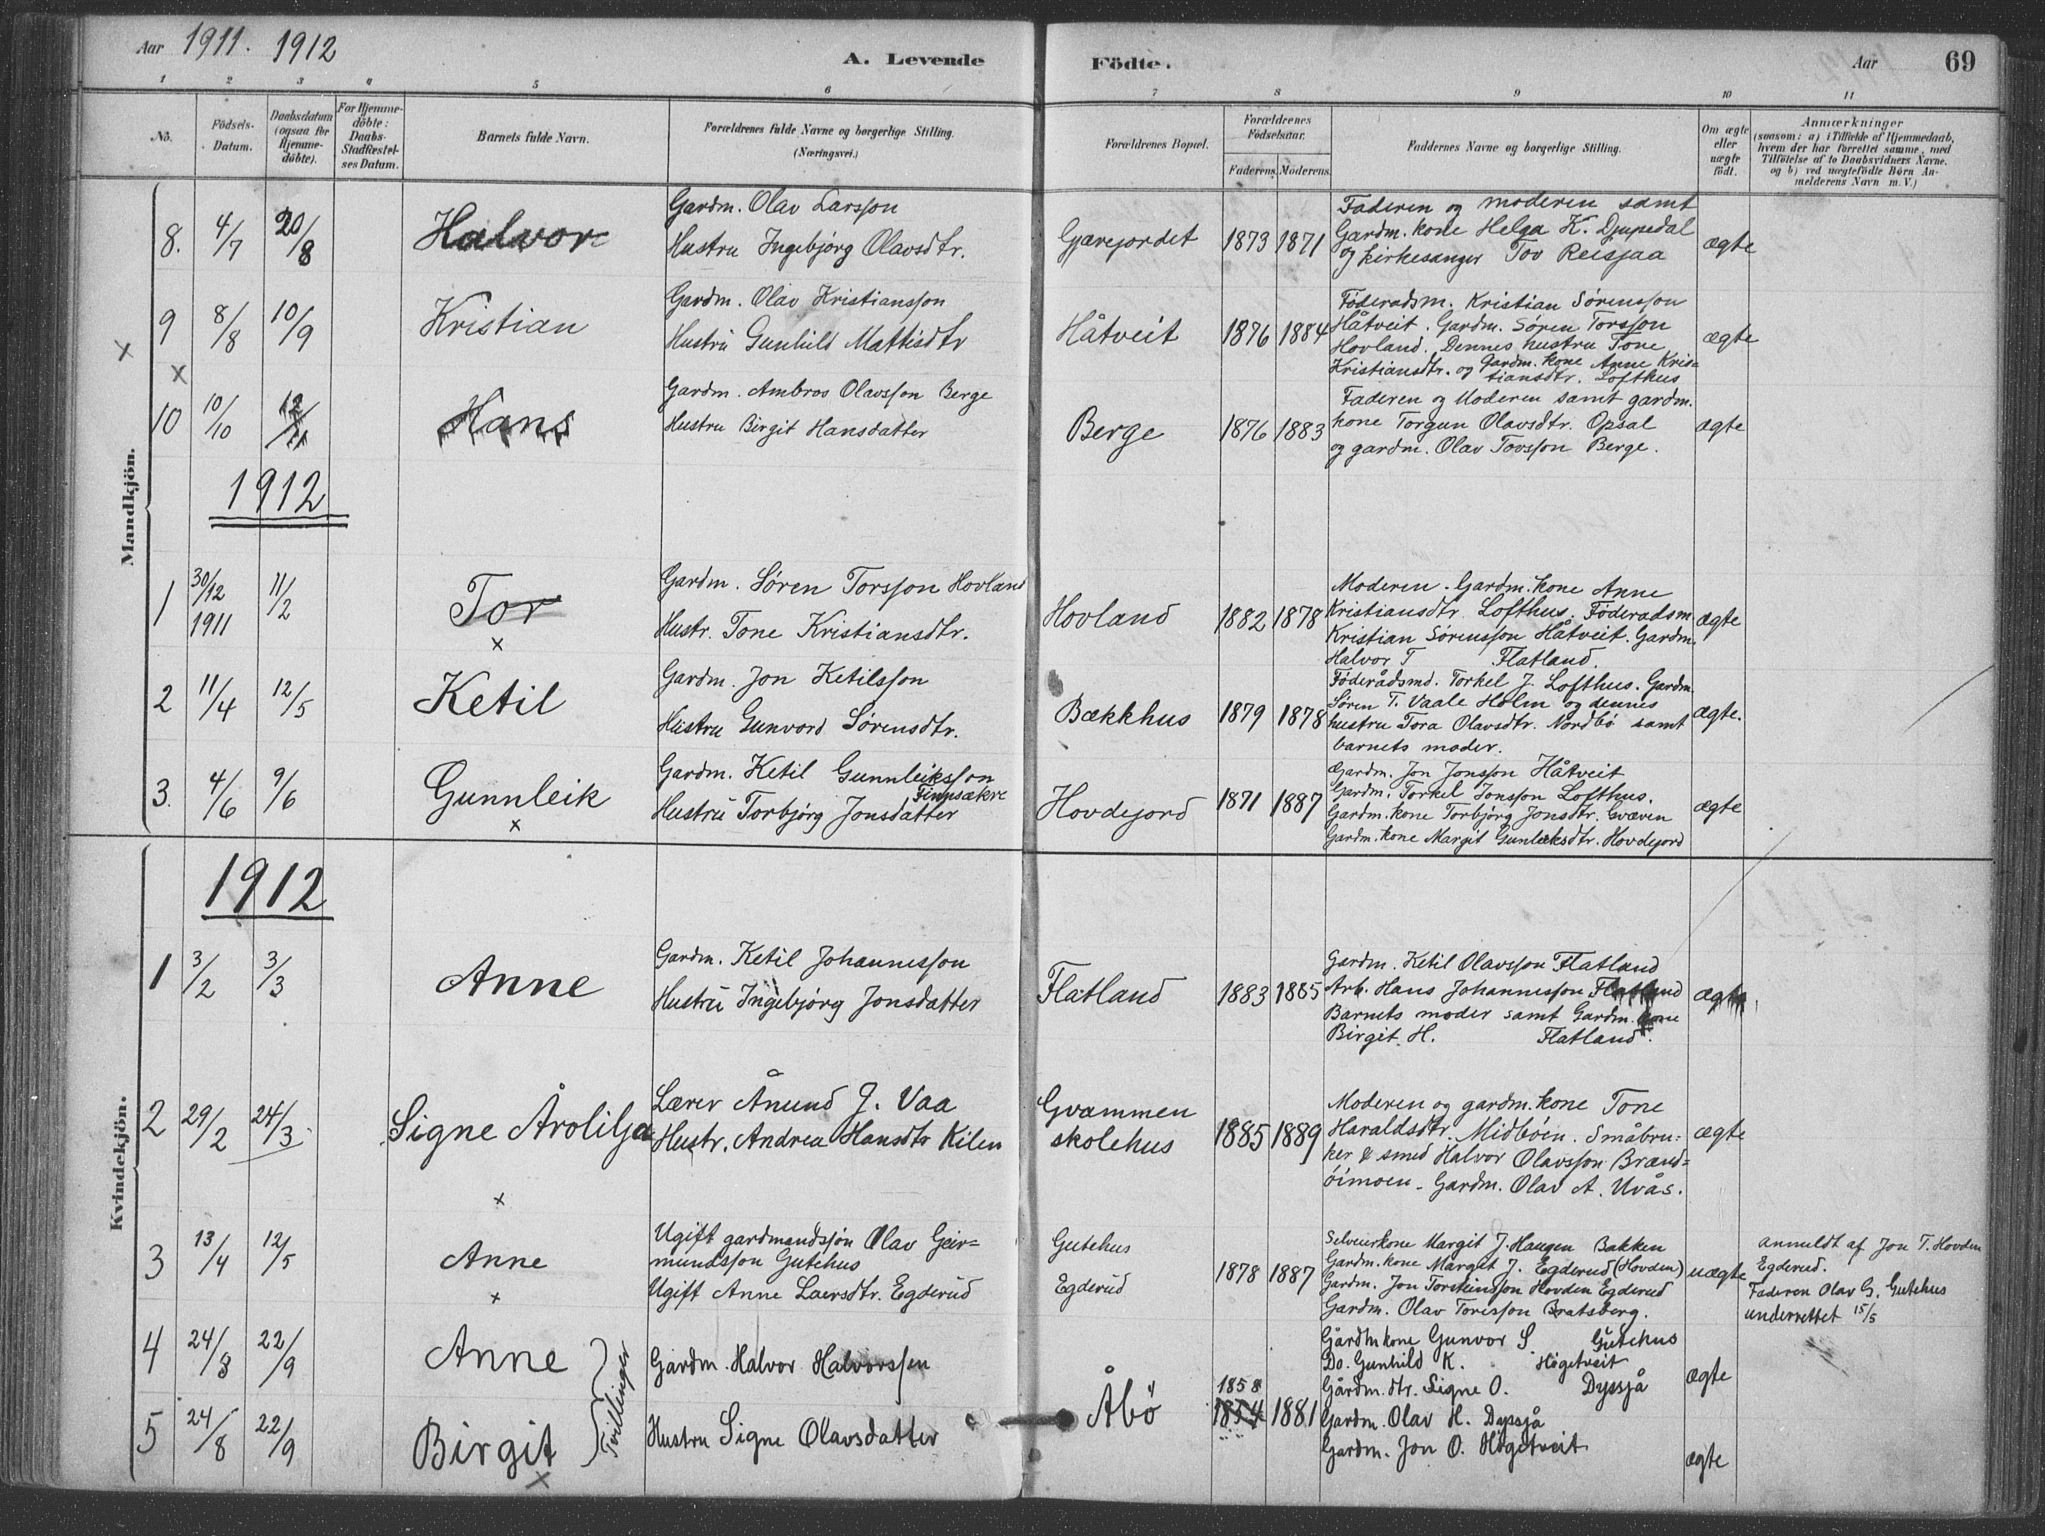 Aar 1911. 1912
A. Levende Födte.
Aar 69
1 2 3 4 5 6 7 8 9 10 11
No. Födsels-Datum. Daabsdatum (ogsaa for Hjemme-döbte). For Hjemme-döbte: Daabs-Stadfæstel-ses Datum. Barnets fulde Navn. Forældrenes fulde Navne og borgerlige Stilling. (Næringsvei.) Forældrenes Bopæl. Forældrenes Födselsaar. Faderens. Moderens. Faddernes Navne og borgerlige Stilling. Om ægte eller uægte födt. Anmærkninger (saasom: a) i Tilfælde af Hjemmedaab, hvem der har forrettet samme, med Tilföielse af to Daabsvidners Navne, og b) ved uægtefödte Börn An-melderens Navn m. V.)
Mandkjön.
8. 4/7 20/8 Halvor
Gardm. Olav Larsson
Hustru Ingebjörg Olavsdtr.
Gjavejordet 1873 1871
Faderen og moderen samt
Gardm. kone Helga K. Djupedal
og kirkesanger Tov Reisjaa
ægte
9 8/8 10/9 Kristian
Gardm. Olav Kristiansson
Hustru Gunhild Mattisdtr
Håtveit 1876 1884
Föderadsm. Kristian Sørensson
Håtveit. Gardm. Sören Torsson
Hovland. Dennes hustru Tone
Kristiansdtr. og Gardm. kone Anne Kris-
tiansdtr. Lofthus
ægte
10 10/10 12/11 Hans
Gardm. Ambros Olavsson Berge
Hustru Birgit Hansdatter
Berge 1876 1883
Faderen og Moderen samt gardm.
kone Torgun Olavsdtr. Opsal
og gardm. Olav Tovsson Berge.
ægte
1912
1 30/12 1911 11/2 Tor
Gardm. Sören Torsson Hovland
Hustr. Tone Kristiansdtr.
Hovland 1882 1878
Moderen. Gardm. kone Anne
Kristiansdtr. Lofthus. Föderadsm.
Kristian Sørensson Håtveit. Gardm.
Halvor T Flatland.
ægte
2 11/4 12/5 Ketil
Gardm. Jon Ketilsson
Hustru Gunvord Sørensdtr.
Bækkhus 1879 1878
Föderådsmd. Torkel J. Lofthus. Gardm.
Sören T. Vaale Holm og dennes
hustru Tora Olavsdtr. Nordbö samt
barnets moder.
ægte.
3. 4/6 9/6 Gunnleik
Gardm. Ketil Gunnleiksson
Finnsækre
Hustru Torbjörg Jonsdatter
Hovdejord 1871 1887
Gardm. Jon Jonsson Håtveit
Gardm. Torkel Jonsson Lofthus.
Gardm. kone Torbjörg Jonsdtr. Gvæven
Gardm. kone Margit Gunleiksdtr. Hovdejord
ægte
Kvindekjön.
1912
1 3/2 3/3 Anne
Gardm. Ketil Johannesson
Hustru Ingebjörg Jonsdatter
Flatland 1883 1885
Gardm. Ketil Olavsson Flatland
Arb. Hans Johannesson Flatland
Barnets moder samt Gardm. kone
Birgit. H. Flatland.
ægte
2 29/2 24/3 Signe Årolilja
Lærer Ånund J. Vaa
Hustr. Andrea Hansdtr Kilen
Gvammen
skolehus
1885 1889
Moderen og gardm. kone Tone
Haraldsdtr. Midböen. Småbru-
ker & smed Halvor Olavsson Brænd-
öimoen. Gardm. Olav A. Uvås.
ægte
3 13/4 12/5 Anne
Ugift gardmandssön Olav Geir-
mundsson Gutehus
Ugift Anne Laersdtr. Egderud
Gutehus
Egderud
1878 1887
Selveierkone Margit J. Haugen Bakken
Gardm. kone Margit J. Egderud (Hovden)
Gardm. Jon Torsteinsson Hovden Egderud
Gardm. Olav Torisson Bratsberg.
uægte
anmeldt af Jon T. Hovden
Egderud.
Faderen Olav G. Gutehus
underrettet 15/5
4 24/8 22/9 Anne
5 24/8 22/9 Birgit
Tvillinger
Gardm. Halvor Halvorssen
Hustru Signe Olavsdatter
Åbö
1858
1854 1881
Gårdm kone Gunvor S. Gutehus
Do. Gunhild K. Högetveit
Gårdm. dtr. Signe O. Dyssjå
Gardm. Olav H. Dyssjå
Gardm. Jon O. Högetveit
ægte
ægte